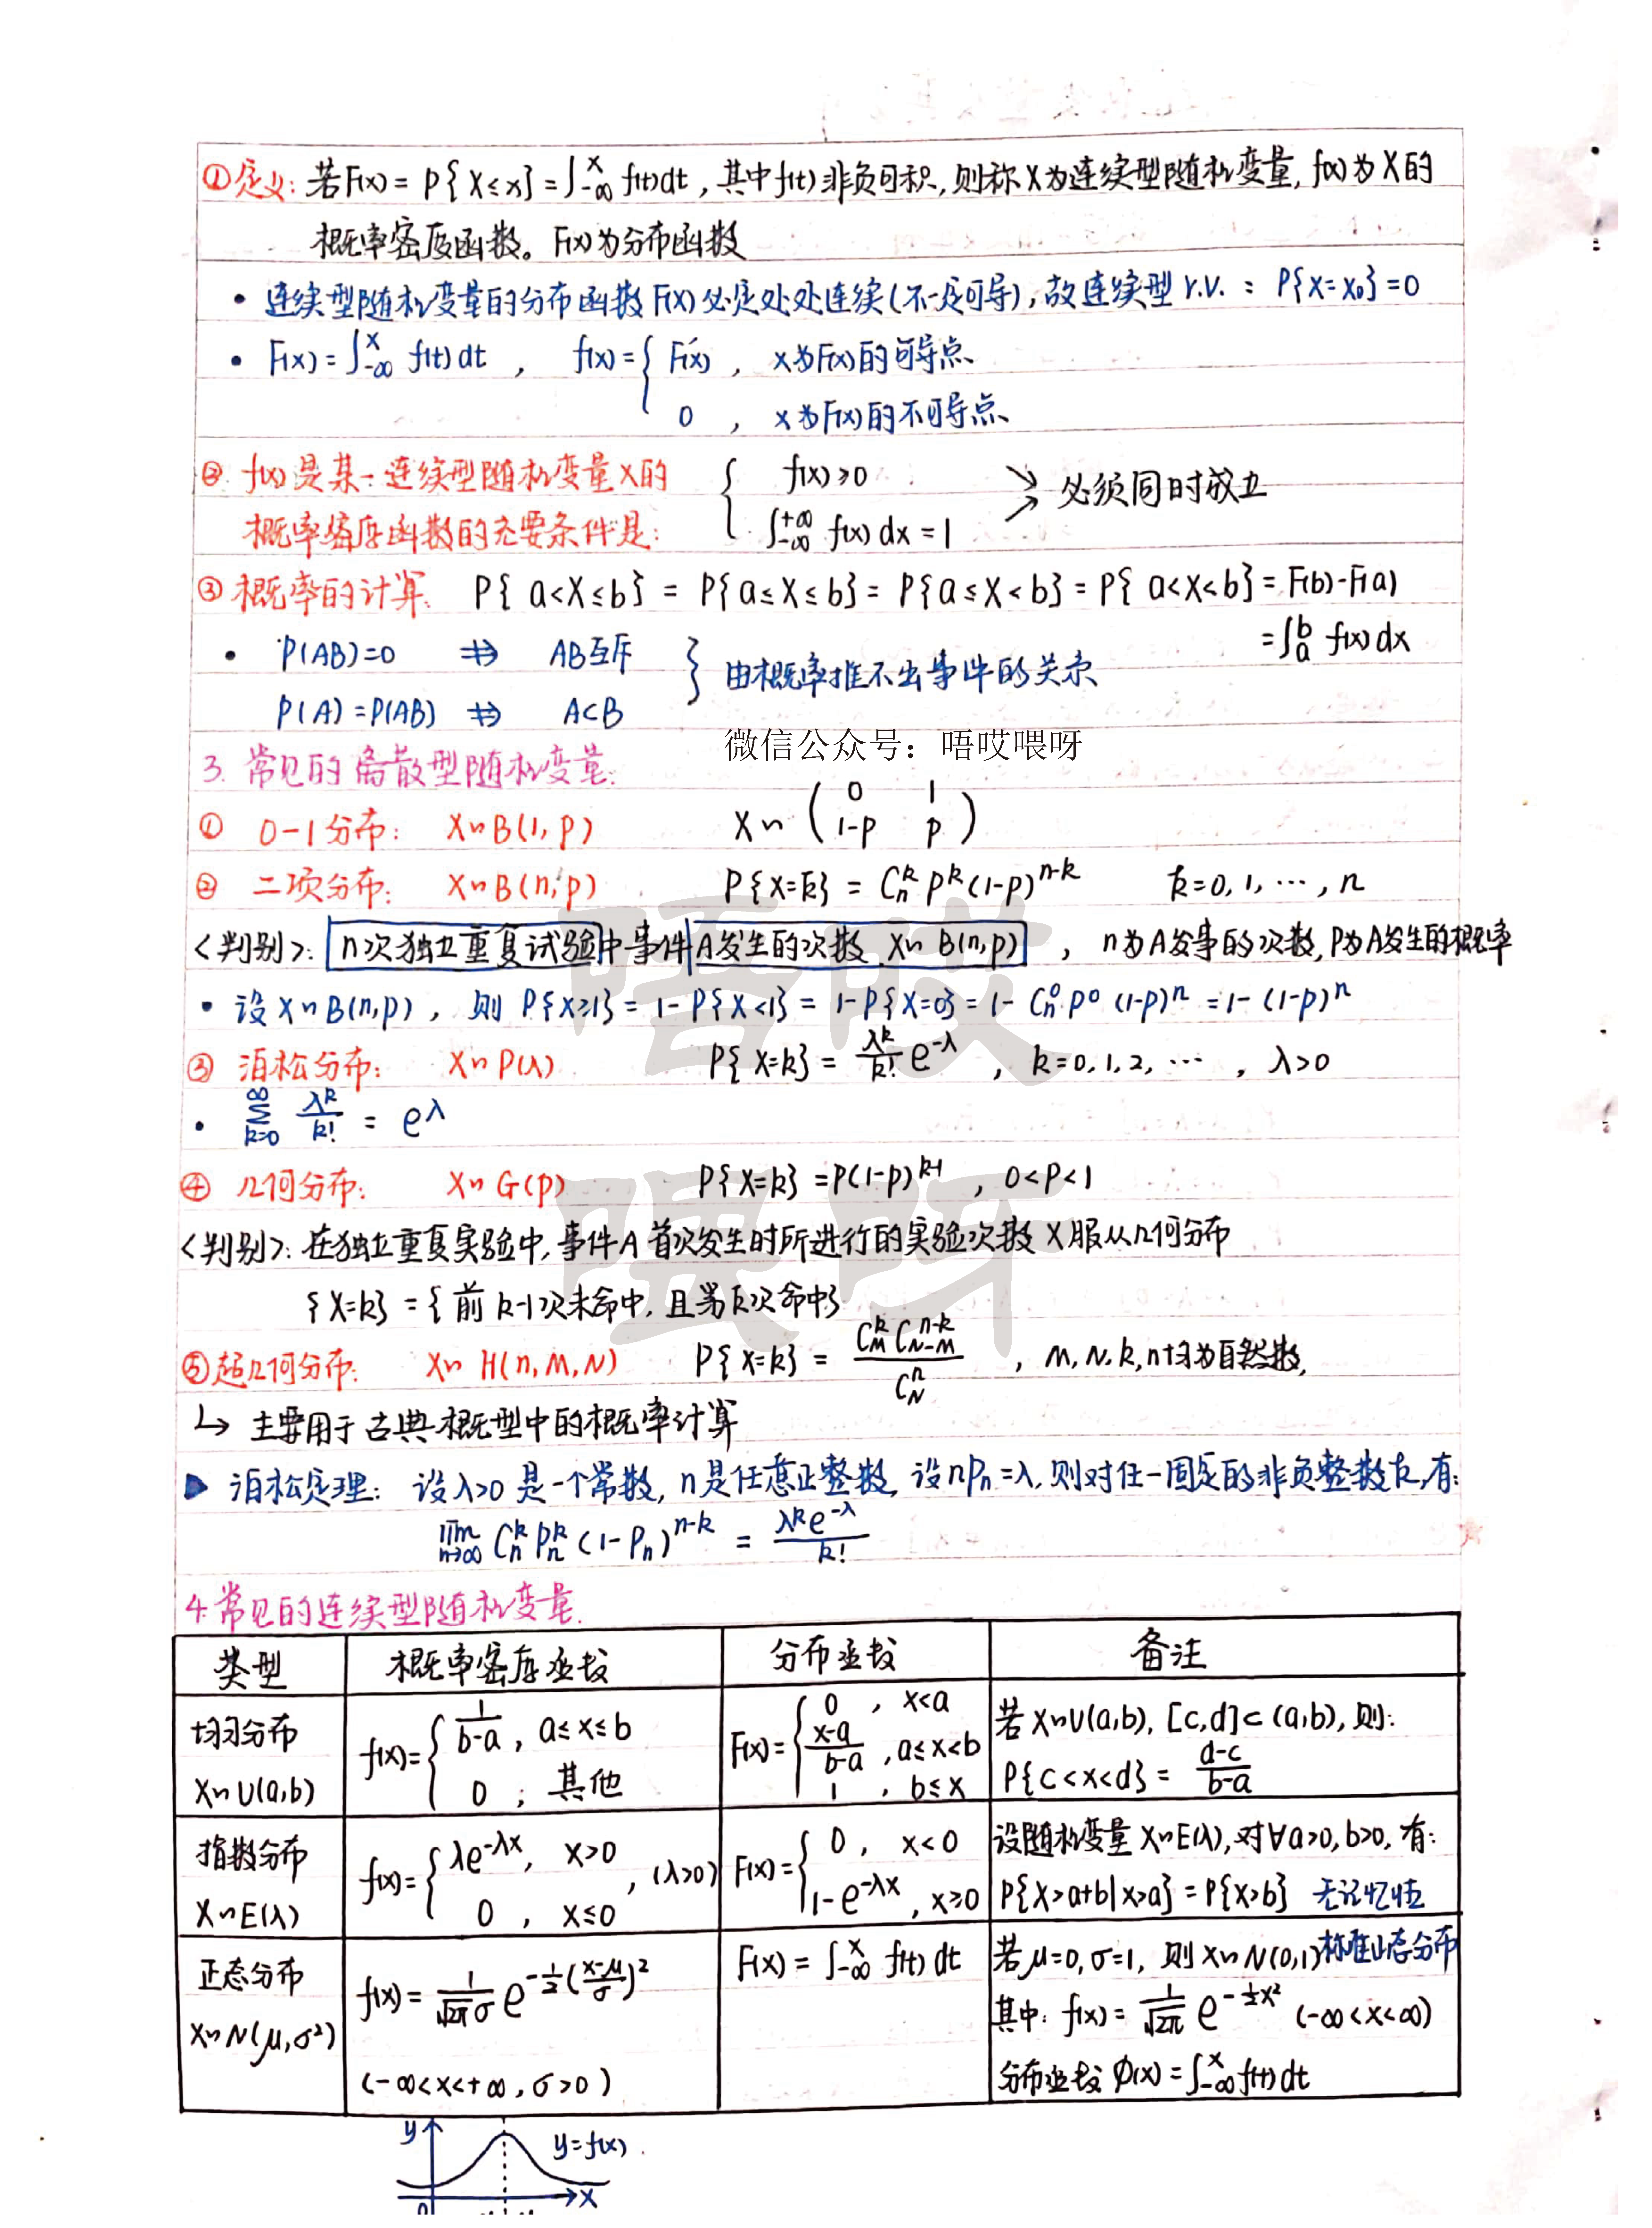 ①定义: 若F(x) = P{X≤x} = ∫_{-∞}^{x} f(t)dt, 其中f(t)非负可积, 则称X为连续型随机变量, f(x)为X的
概率密度函数。F(x)为分布函数
• 连续型随机变量的分布函数F(x)必定处处连续(不一定可导), 故连续型 r.v. : P{X=x₀}=0
• F(x) = ∫_{-∞}^{x} f(t)dt , f(x) = { F'(x) , x为F(x)的可导点
0 , x为F(x)的不可导点
② f(x)是某一连续型随机变量X的 { f(x)≥0 必须同时成立
概率密度函数的充要条件是: ∫_{-∞}^{+∞} f(x)dx = 1
③ 概率的计算: P{a<X≤b} = P{a≤X≤b} = P{a≤X<b} = P{a<X<b} = F(b)-F(a)
= ∫_a^b f(x)dx
• P(AB)=0 ⇏ AB互斥 } 由概率推不出事件的关系
P(A)=P(AB) ⇏ A⊂B
微信公众号：唔哎喂呀
3. 常见的离散型随机变量:
① 0-1分布: X~B(1,p) X~ ( 0 1
1-p p )
② 二项分布: X~B(n,p) P{X=k} = C_n^k p^k (1-p)^{n-k} k=0,1,…,n
<判别>: n次独立重复试验中事件A发生的次数 X~B(n,p) , n为A发事的次数, P为A发生的概率
• 设X~B(n,p), 则 P{X≥1} = 1-P{X<1} = 1-P{X=0} = 1- C_n^0 p^0 (1-p)^n = 1-(1-p)^n
③ 泊松分布: X~P(λ) P{X=k} = λ^k/k! e^{-λ} , k=0,1,2,… , λ>0
• ∑_{k=0}^{∞} λ^k/k! = e^λ
④ 几何分布: X~G(p) P{X=k} = P(1-p)^{k-1} , 0<p<1
<判别>: 在独立重复实验中, 事件A首次发生时所进行的实验次数X服从几何分布
{X=k} = {前k-1次未命中, 且第k次命中}
⑤超几何分布: X~H(n,M,N) P{X=k} = C_M^k C_{N-M}^{n-k} / C_N^n , M,N,k,n均为自然数,
↳ 主要用于古典概型中的概率计算
▶ 泊松定理: 设λ>0是一个常数, n是任意正整数, 设nPₙ=λ, 则对任一固定的非负整数k, 有:
lim_{n→∞} C_n^k P_n^k (1-Pₙ)^{n-k} = λ^k e^{-λ}/k!
4. 常见的连续型随机变量.
类型 概率密度函数 分布函数 备注
均匀分布 X~U(a,b) f(x) = { 1/(b-a), a≤x≤b ; 0 , 其他 F(x) = { 0 , x<a ; (x-a)/(b-a) , a≤x<b ; 1 , b≤x 若X~U(a,b), [c,d]⊂(a,b), 则: P{c<x<d} = (d-c)/(b-a)
指数分布 X~E(λ) f(x) = { λe^{-λx}, x>0 ; 0 , x≤0 , (λ>0) F(x) = { 0 , x<0 ; 1-e^{-λx} , x≥0 设随机变量X~E(λ), 对∀a>0, b>0, 有: P{X>a+b|x>a} = P{X>b} 无记忆性
正态分布 X~N(μ,σ²) f(x) = 1/(√(2π)σ) e^{-½((x-μ)/σ)²} (-∞<x<+∞, σ>0) F(x) = ∫_{-∞}^{x} f(t)dt 若μ=0, σ=1, 则X~N(0,1)标准正态分布 其中: f(x) = 1/√(2π) e^{-½x²} (-∞<x<∞) 分布函数 Φ(x) = ∫_{-∞}^{x} f(t)dt
y y=f(x)
0 x
唔哎
喂呀